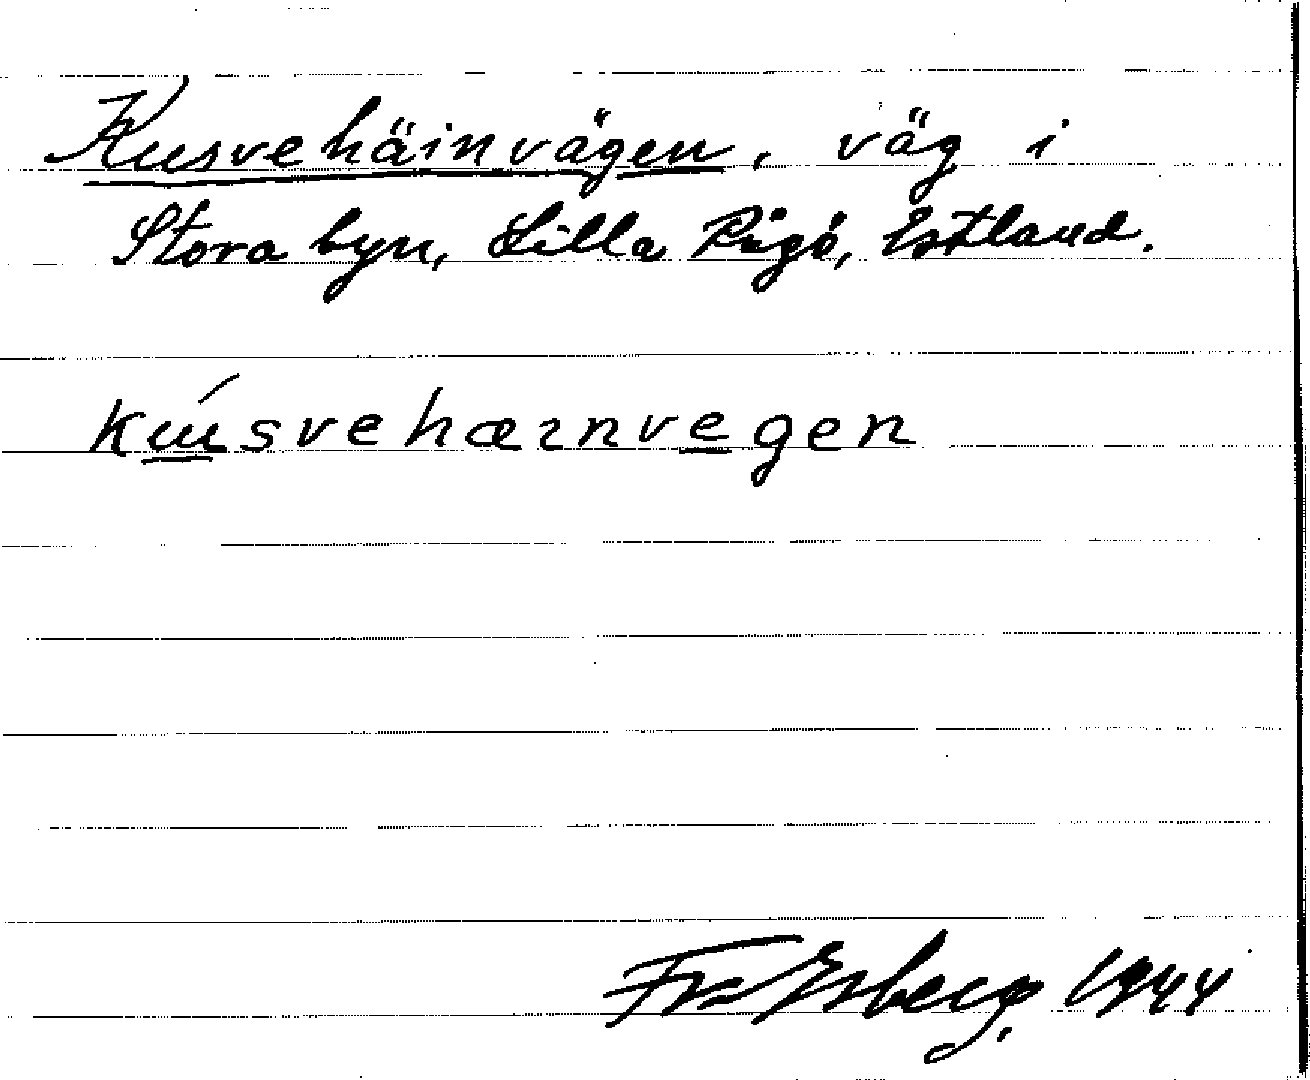 Kusvehäinvägen, väg i
Stora byn, Lilla Rågö, Estland.
kúsvehæɩnvegen
1944